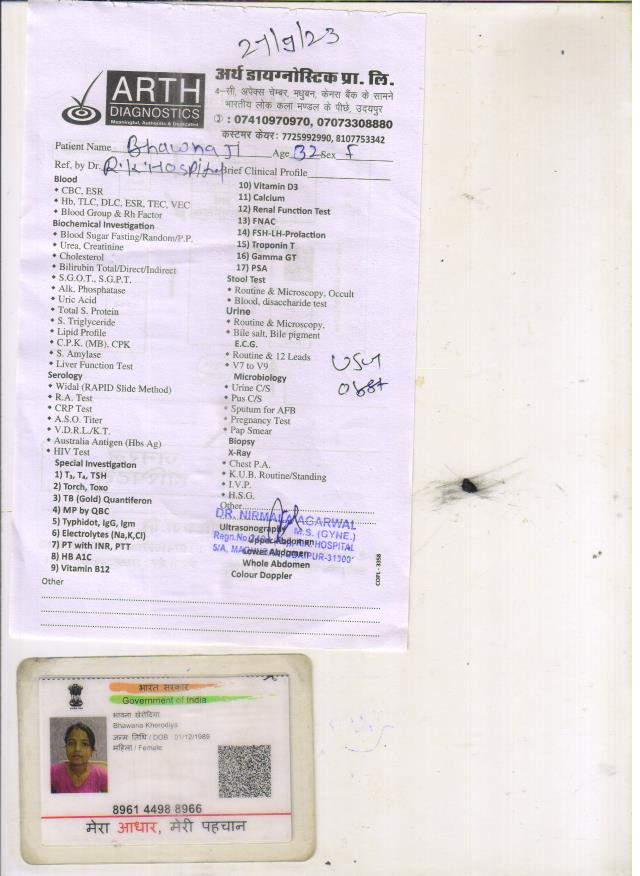 27/9/23
ARTH
DIAGNOSTICS
Meaningful, Authentic & Dedicated
अर्थ डायग्नोस्टिक प्रा. लि.
4-सी, अपेक्स चेम्बर, मधुबन, केनरा बैंक के सामने
भारतीय लोक कला मण्डल के पीछे, उदयपुर
: 07410970970, 07073308880
कस्टमर केयर: 7725992990, 8107753342
Patient Name Bhawna Ji Age 32 Sex F
Ref, by Dr. R.K Hospital Brief Clinical Profile
Blood
CBC, ESR
Hb, TLC, DLC, ESR, TEC, VEC
Blood Group & Rh Factor
Biochemical Investigation
Blood Sugar Fasting/Random/P.P.
Urea, Creatinine
Cholesterol
Bilirubin Total/Direct/Indirect
S.G.O.T., S.G.P.T.
Alk. Phosphatase
Uric Acid
Total S. Protein
S. Triglyceride
Lipid Profile
C.P.K. (MB), CPK
S. Amylase
Liver Function Test
Serology
Widal (RAPID Slide Method)
R.A. Test
CRP Test
A.S.O. Titer
V.D.R.L./K.T.
Australia Antigen (Hbs Ag)
HIV Test
Special Investigation
1) T₃, T₄, TSH
2) Torch, Toxo
3) TB (Gold) Quantiferon
4) MP by QBC
5) Typhidot, IgG, Igm
6) Electrolytes (Na,K,Cl)
7) PT with INR, PTT
8) HB A1C
9) Vitamin B12
10) Vitamin D3
11) Calcium
12) Renal Function Test
13) FNAC
14) FSH-LH-Prolaction
15) Troponin T
16) Gamma GT
17) PSA
Stool Test
Routine & Microscopy, Occult
Blood, disaccharide test
Urine
Routine & Microscopy,
Bile salt, Bile pigment
E.C.G.
Routine & 12 Leads
V7 to V9
Microbiology
Urine C/S
Pus C/S
Sputum for AFB
Pregnancy Test
Pap Smear
Biopsy
X-Ray
Chest P.A.
K.U.B. Routine/Standing
I.V.P.
H.S.G.
Other
USG
Obst
DR. NIRMALA AGARWAL
M.S. (GYNE.)
Regn.No. HOSPITAL
Ultrasonography
Upper Abdomen
Lower Abdomen
Whole Abdomen
Colour Doppler
Other
COPL - 3258
भारत सरकार
Government of India
भावना खेरोदिया
Bhawana Kherodiya
जन्म तिथि / DOB 01/12/1989
महिला / Female
8961 4498 8966
मेरा आधार, मेरी पहचान